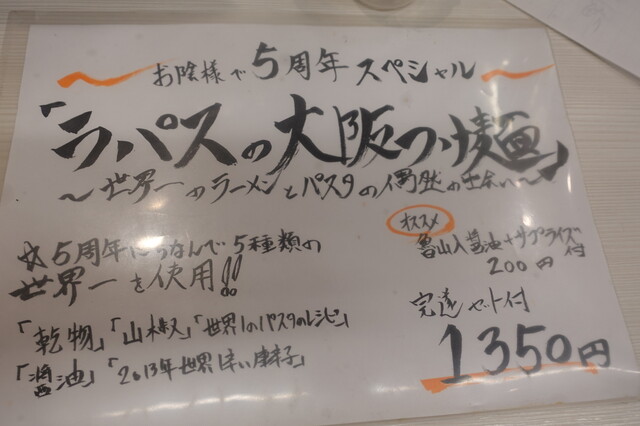 お陰様で5周年スペシャル
「ラパスの大阪つけ麺」
～世界一のラーメンとパスタの偶然の出会い～
☆5周年にちなんで5種類の
世界一を使用!!
「乾物」「山椒」「世界1のパスタのレシピ」
「醤油」「2013年世界一辛い唐辛子」
オススメ
魯山人醤油+サプライズ付
200円
完達セット付
1350円